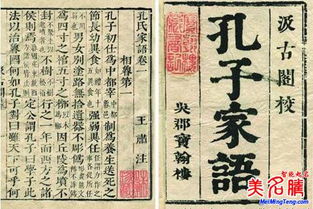 汲古閣校
孔子家語
吳郡寶翰樓
孔氏家語卷一
相魯第一 王肅注
孔子初仕為中都宰 制為養生送死之
節長幼異食 強弱異任
男女別塗路無拾遺器不彫偽
為四寸之棺五寸之椁 因丘陵為墳不
封不樹 行之一年而西方之諸
侯則焉 定公謂孔子曰學子此
法以治魯國何如孔子對曰雖天下可
智能起名
美名騰
www.MeiMingTeng.com